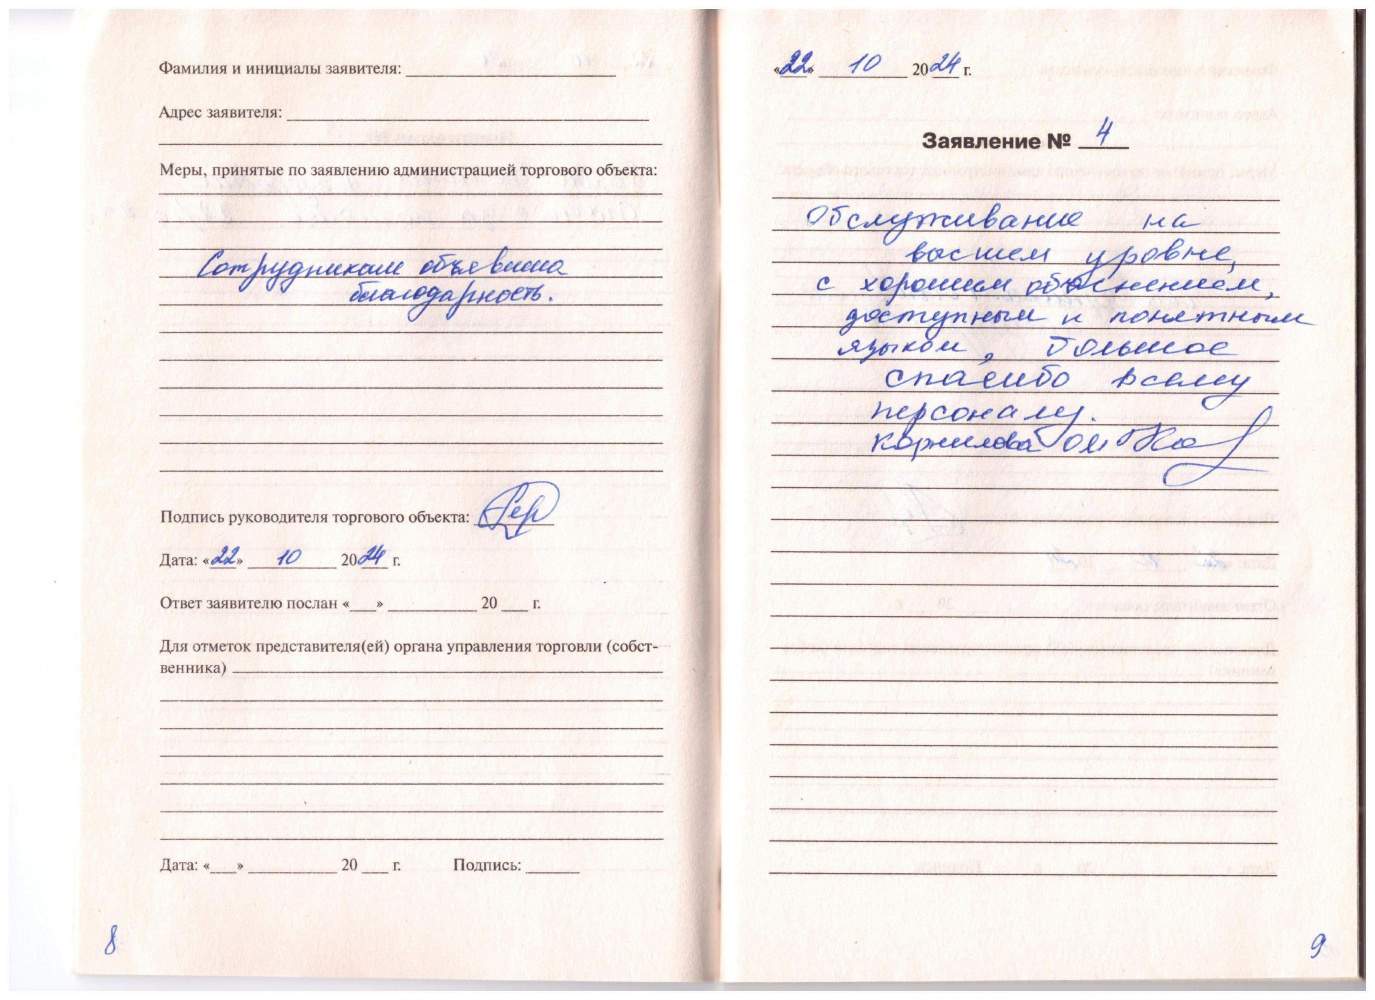 Фамилия и инициалы заявителя:
Адрес заявителя:
Меры, принятые по заявлению администрацией торгового объекта:
Сотрудникам объявлена
благодарность.
Подпись руководителя торгового объекта:
Дата: «22» 10 2024 г.
Ответ заявителю послан «___» ______ 20 ___ г.
Для отметок представителя(ей) органа управления торговли (собст-
венника)
Дата: «___» ______ 20 ___ г. Подпись:
8
«22» 10 2024 г.
Заявление № 4
Обслуживание на
высшем уровне,
с хорошим объяснением,
доступным и понятным
языком, большое
спасибо всему
персоналу.
Корнилова
9